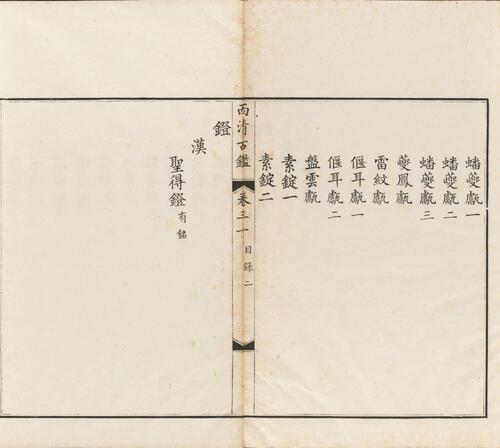 蟠夔甗一
蟠夔甗二
蟠夔甗三
夔鳳甗
雷紋甗
偃耳甗一
偃耳甗二
盤雲甗
素錠一
素錠二
西清古鑑 卷三一 目錄二
鐙
漢
聖得鐙有銘